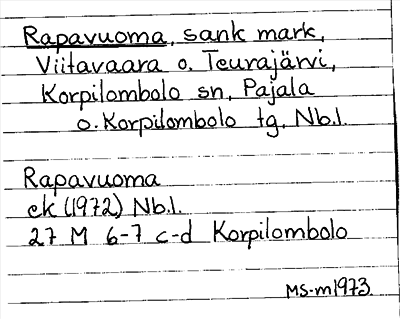 Rapavuoma, sank mark,
Viitavaara o. Teurajärvi,
Korpilombolo sn, Pajala
o. Korpilombolo tg, Nb.l.
Rapavuoma
ek (1972) Nb.l.
27 M 6-7 c-d Korpilombolo
MS-m1973.